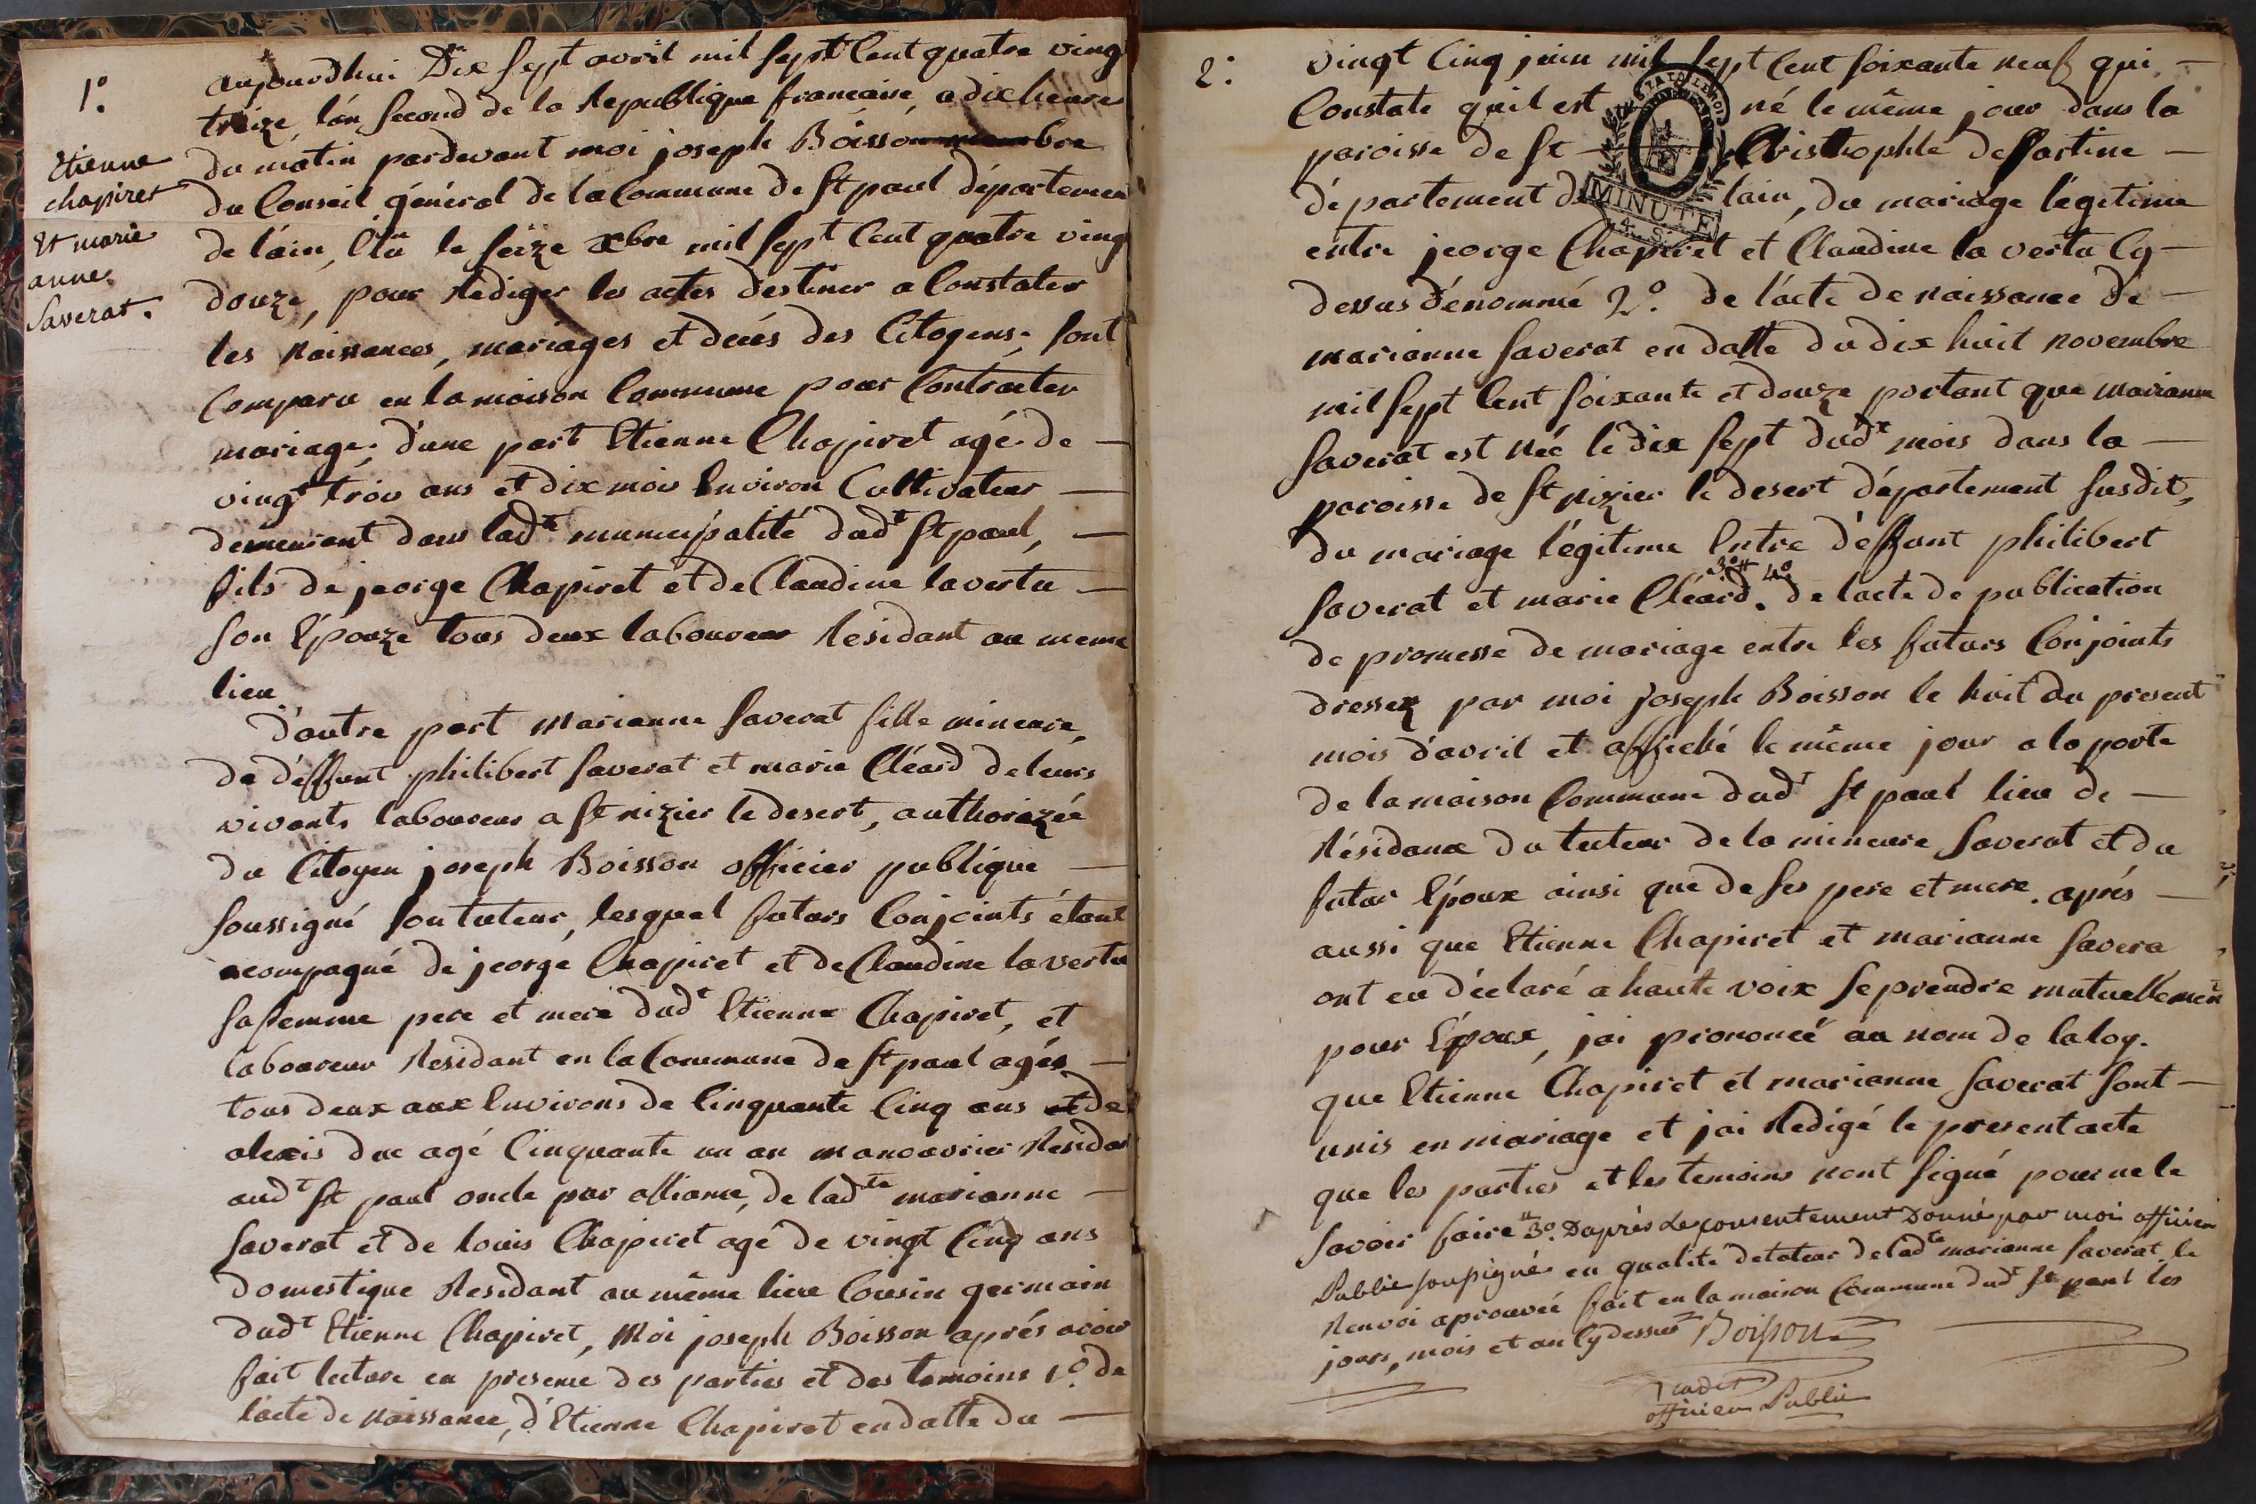 1°.
Etienne
chapiret
Et marie
anne
Saverat.
aujourdhui Dix sept avril mil sept Cent quatre ving
treize, lán second de la Republique francaise, a dix heures
du matin pardevant moi joseph Boisson membre
du Conseil général de la Commune de St paul départemen
de láin, Elu le seize xbre mil sept Cent quatre ving
douze, pour Rediger les actes destiner a Constater
les Naissances, mariages et decés des Citoyens; sont
Comparu en la maison Commune pour Contracter
mariage; d'une part Etienne Chapiret agé de —
vingt trois ans et dix mois Environ Cultivateur —
demeurant dans ladte municipalité dudt St paul, —
fils de jeorge Chapiret et de Claudine la vertu —
son Epouze tous deux laboureur Residant au meme
lieu
D'autre part Marianne Saverat fille mineure,
de déffunt philibert Saverat et marie Cléard de leurs
vivants laboureur a St nizier le desert, authorizée
du Citoyen joseph Boisson officier publique —
soussigné son tuteur, lesquel futurs Conjoints étant
acompagné de jeorge Chapiret et de Claudine la vertu
sa femme pere et mere dudt Etienne Chapiret, et
laboureur Residant en la Commune de St paul agés —
tous deux aux Environs de Cinquante Cinq ans et de
alexis duc agé Cinquante un an manoavrier Residan
audt St paul oncle par alliance, de ladte marianne —
Saverat et de Louis Chapiret agé de vingt Cinq ans
domestique Residant au même lieu Cousin germain
dudt Etienne Chapiret, Moi joseph Boisson aprés avoir
fait lecture en presence des parties et des temoins 1°. de
lácte de Naissance, d'Etienne Chapiret en datte du —
2°.
vingt Cinq juin mil sept Cent soixante neuf qui —
Constate quil est né le même jour dans la
paroisse de St — Christophle de Sartine —
département de lain, du mariage légitime
entre jeorge Chapiret et Claudine la vertu Cy —
dessus dénommé 2°. de lácte de naissance de —
marianne Saverat en datte du dix huit novembre
mil sept Cent soixante et douze portant que marianne
Saverat est née le dix sept dudt mois dans la —
paroisse de St nizier le desert département susdit,
du mariage légitime Entre déffunt philibert
Saverat et marie Cléard. 3° # 4° de lacte de publication
de promesse de mariage entre les futurs Conjoints
dressez par moi joseph Boisson le huit du present
mois d'avril et affiché le même jour a la porte
de la maison Commune dudt St paul lieu de —
Résidance du tuteur de la mineure Saverat et du
futur Epoux ainsi que de ses pere et mere. aprés —
aussi que Etienne Chapiret et marianne Savera
ont eu déclaré a haute voix se prendre mutuellement
pour Epoux, jai prononcé au nom de la loy.
que Etienne Chapiret et marianne Saverat sont —
unis en mariage et jai Redigé le present acte
que les parties et les temoins nont signé pour ne le
savoir faire # 3°. Daprès Le consentement Donné par moi officier
Public soussigné en qualité de tuteur de ladte marianne Saverat, le
Renvoi aprouvée fait en la maison Commune dudt St paul les
jours, mois et an Cy dessus Boisson
officier Public
MINUTE